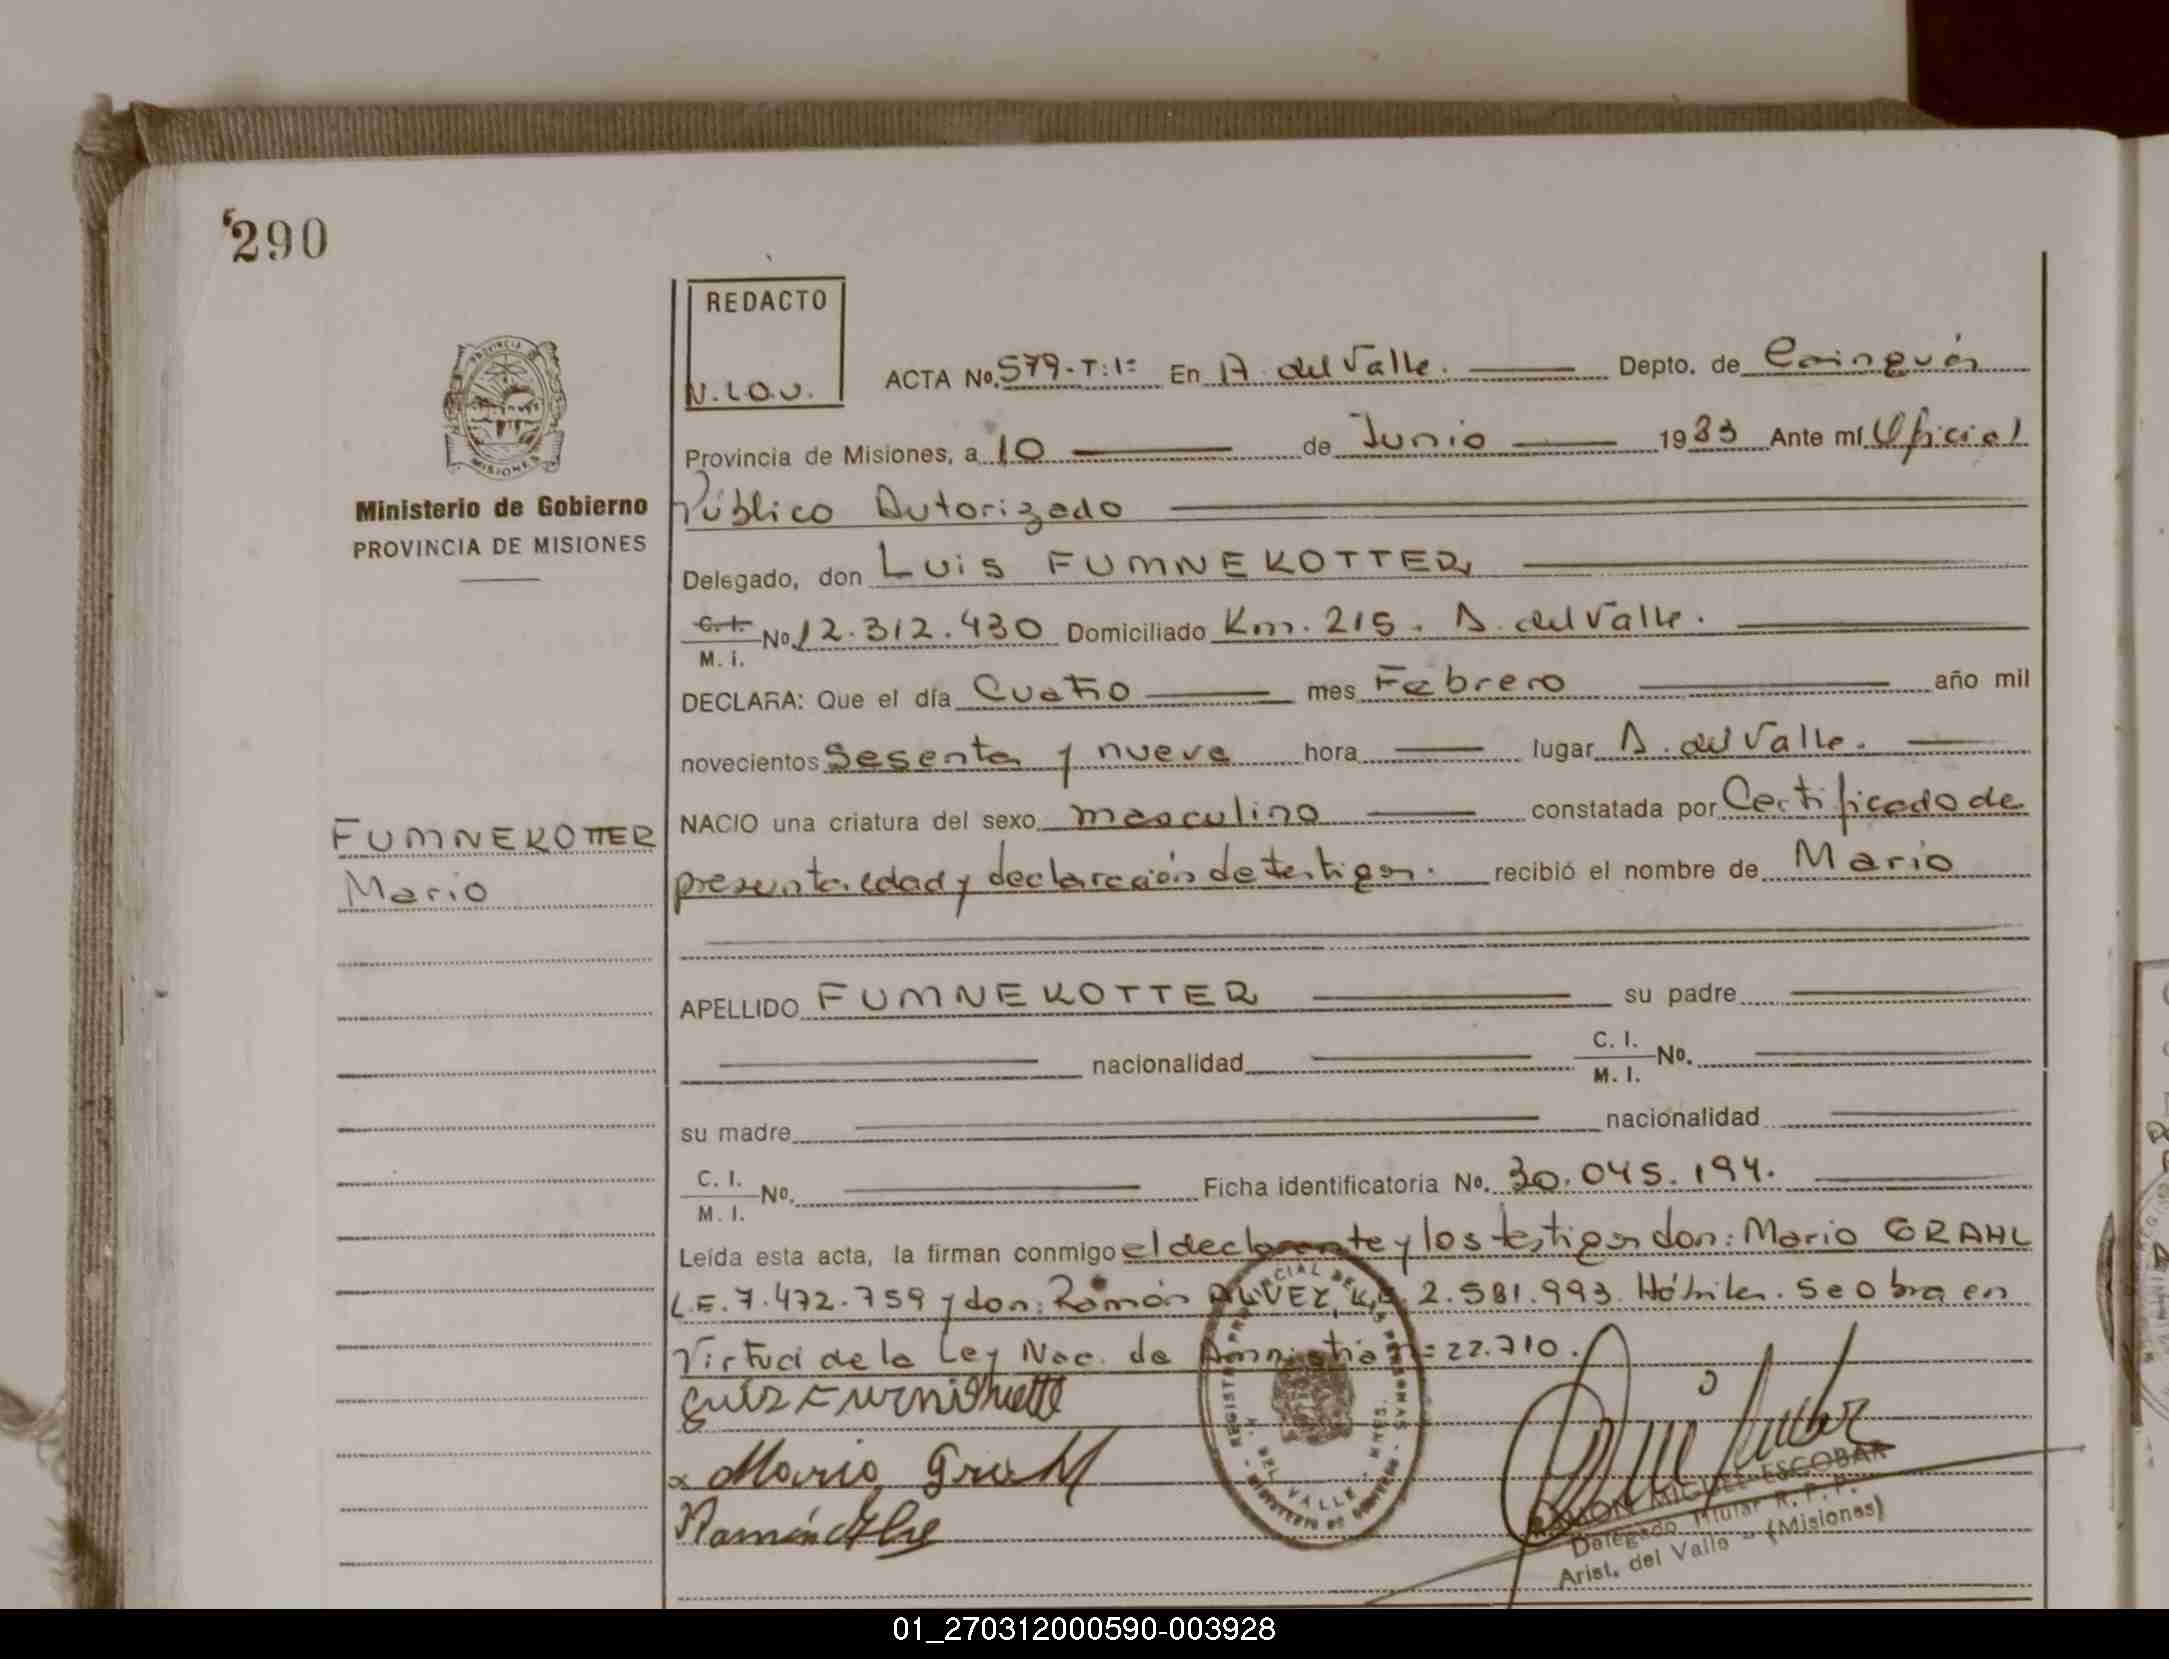 290
REDACTO
V.L.O.U.
ACTA No. 579-T:1º En A. del Valle. Depto. de Cainguás
Provincia de Misiones, a 10 de Junio 1983 Ante mí Oficial
Público Autorizado
PROVINCIA DE
MISIONES
Ministerio de Gobierno
PROVINCIA DE MISIONES
Delegado, don Luis FUMNEKOTTER,
C. I.
M. i. No. 12.312.430 Domiciliado Km. 215. A. del Valle.
DECLARA: Que el día Cuatro mes Febrero año mil
novecientos sesenta y nueve hora lugar A. del Valle.
FUMNEKOTTER
Mario
NACIO una criatura del sexo masculino constatada por Certificado de
presunta edad y declaración de testigos. recibió el nombre de Mario
APELLIDO FUMNEKOTTER su padre
nacionalidad C. I.
M. I. No.
su madre nacionalidad
C. I.
M. I. No. Ficha identificatoria No. 30.045.194.
Leída esta acta, la firman conmigo el declarante y los testigos don: Mario GRAHL
L.E. 7.472.759 y don: Ramón 2.581.993. Hábiles. Se obra en
Virtud de la Ley Nac. de Amnistía nº 22.710.
Mario Grahl
Ramón
DEL VALLE - MNES.
RAMON MIGUEL ESCOBAR
Delegado Titular R. P. P.
Arist. del Valle - (Misiones)
01_270312000590-003928